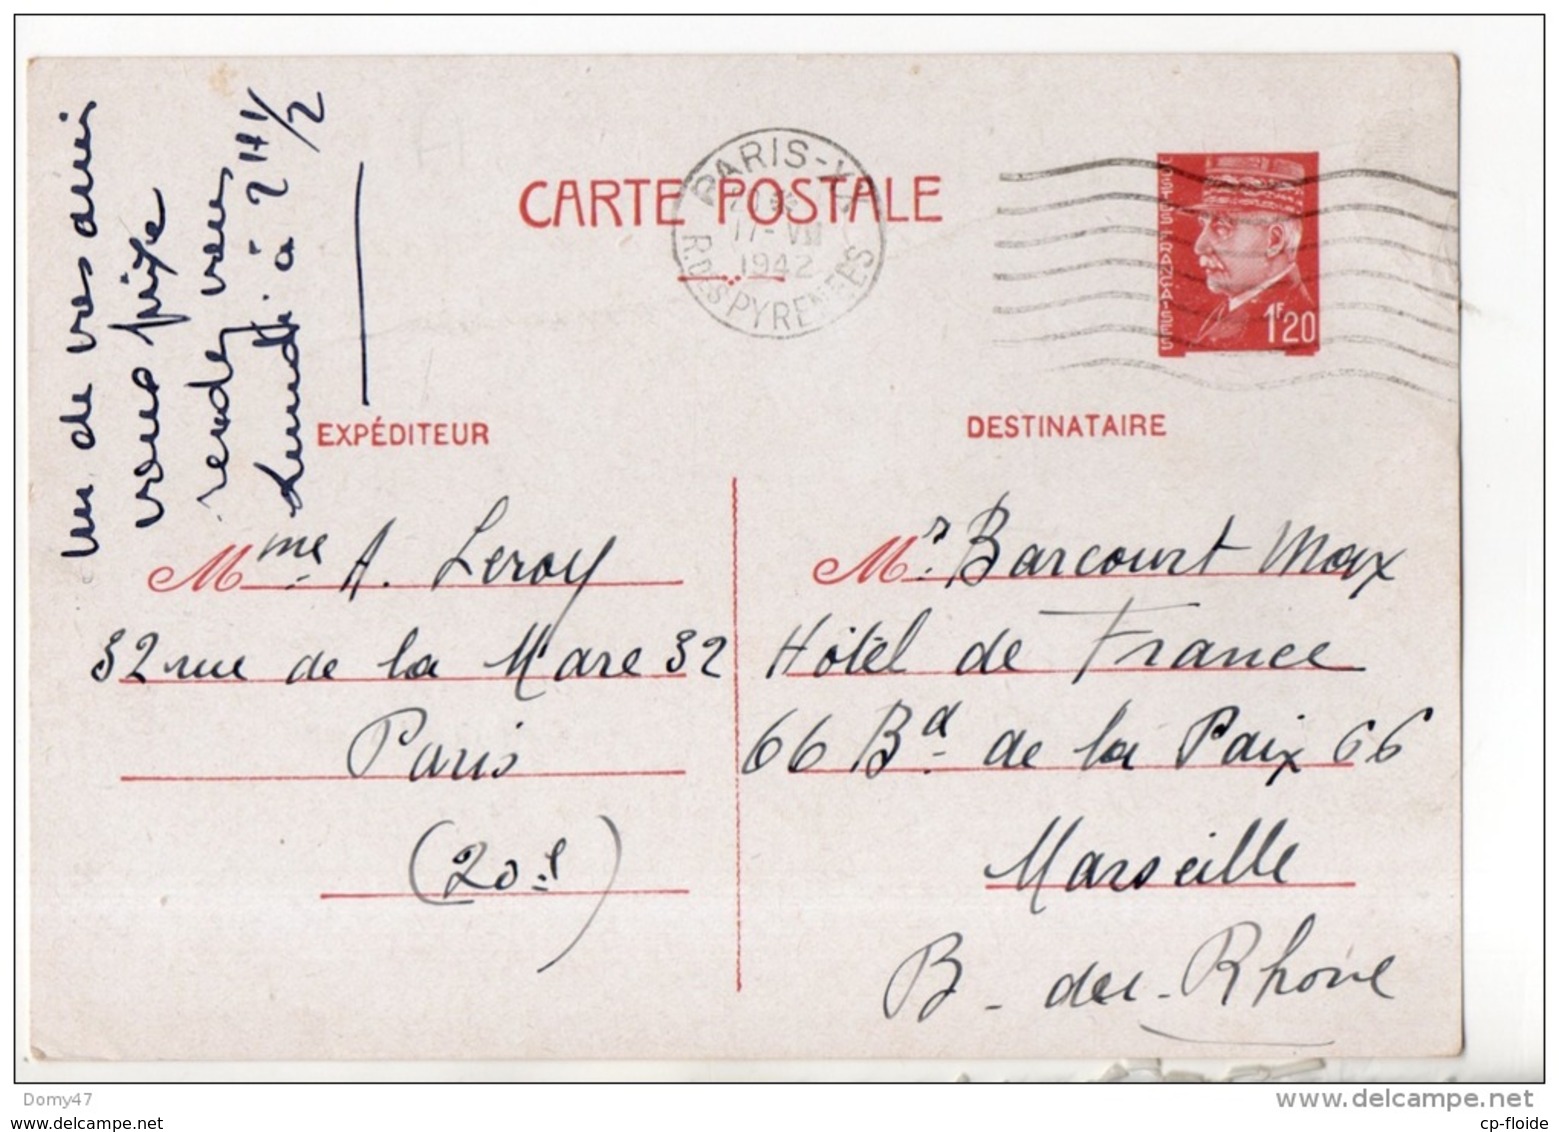 un de vos amis
vous fixe
rendez vous
Lundi à 2H 1/2
CARTE POSTALE
PARIS-XX
17-VIII
1942
R. DES PYRENEES
POSTES FRANÇAISES
1F20
EXPÉDITEUR
Mme A. Leroy
32 rue de la Mare 32
Paris
(20.e)
DESTINATAIRE
Mr. Barcourt Max
Hôtel de France
66 Bd. de la Paix 66
Marseille
B. du-Rhône
Domy47
www.delcampe.net
cp-floide